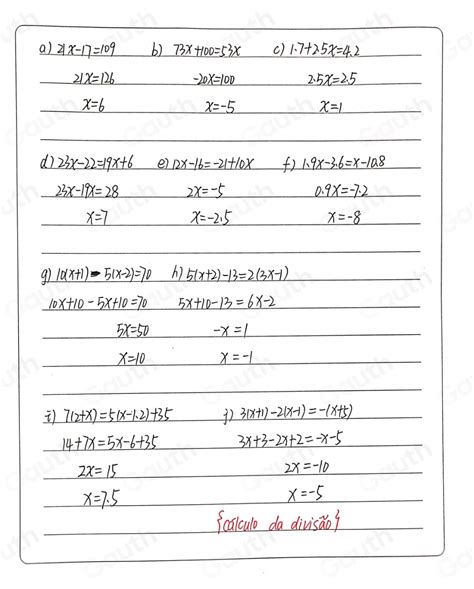 a) 21x-17=109 b) 73x+100=53x c) 1.7+2.5x=4.2
21x=126 -20x=100 2.5x=2.5
x=6 x=-5 x=1
d) 23x-22=19x+6 e) 12x-16=-21+10x f) 1.9x-3.6=x-10.8
23x-19x=28 2x=-5 0.9x=-7.2
x=7 x=-2.5 x=-8
g) 10(x+1)-5(x-2)=70 h) 5(x+2)-13=2(3x-1)
10x+10-5x+10=70 5x+10-13=6x-2
5x=50 -x=1
x=10 x=-1
i) 7(2+x)=5(x-1.2)+35 j) 3(x+1)-2(x-1)=-(x+5)
14+7x=5x-6+35 3x+3-2x+2=-x-5
2x=15 2x=-10
x=7.5 x=-5
{cálculo da divisão}